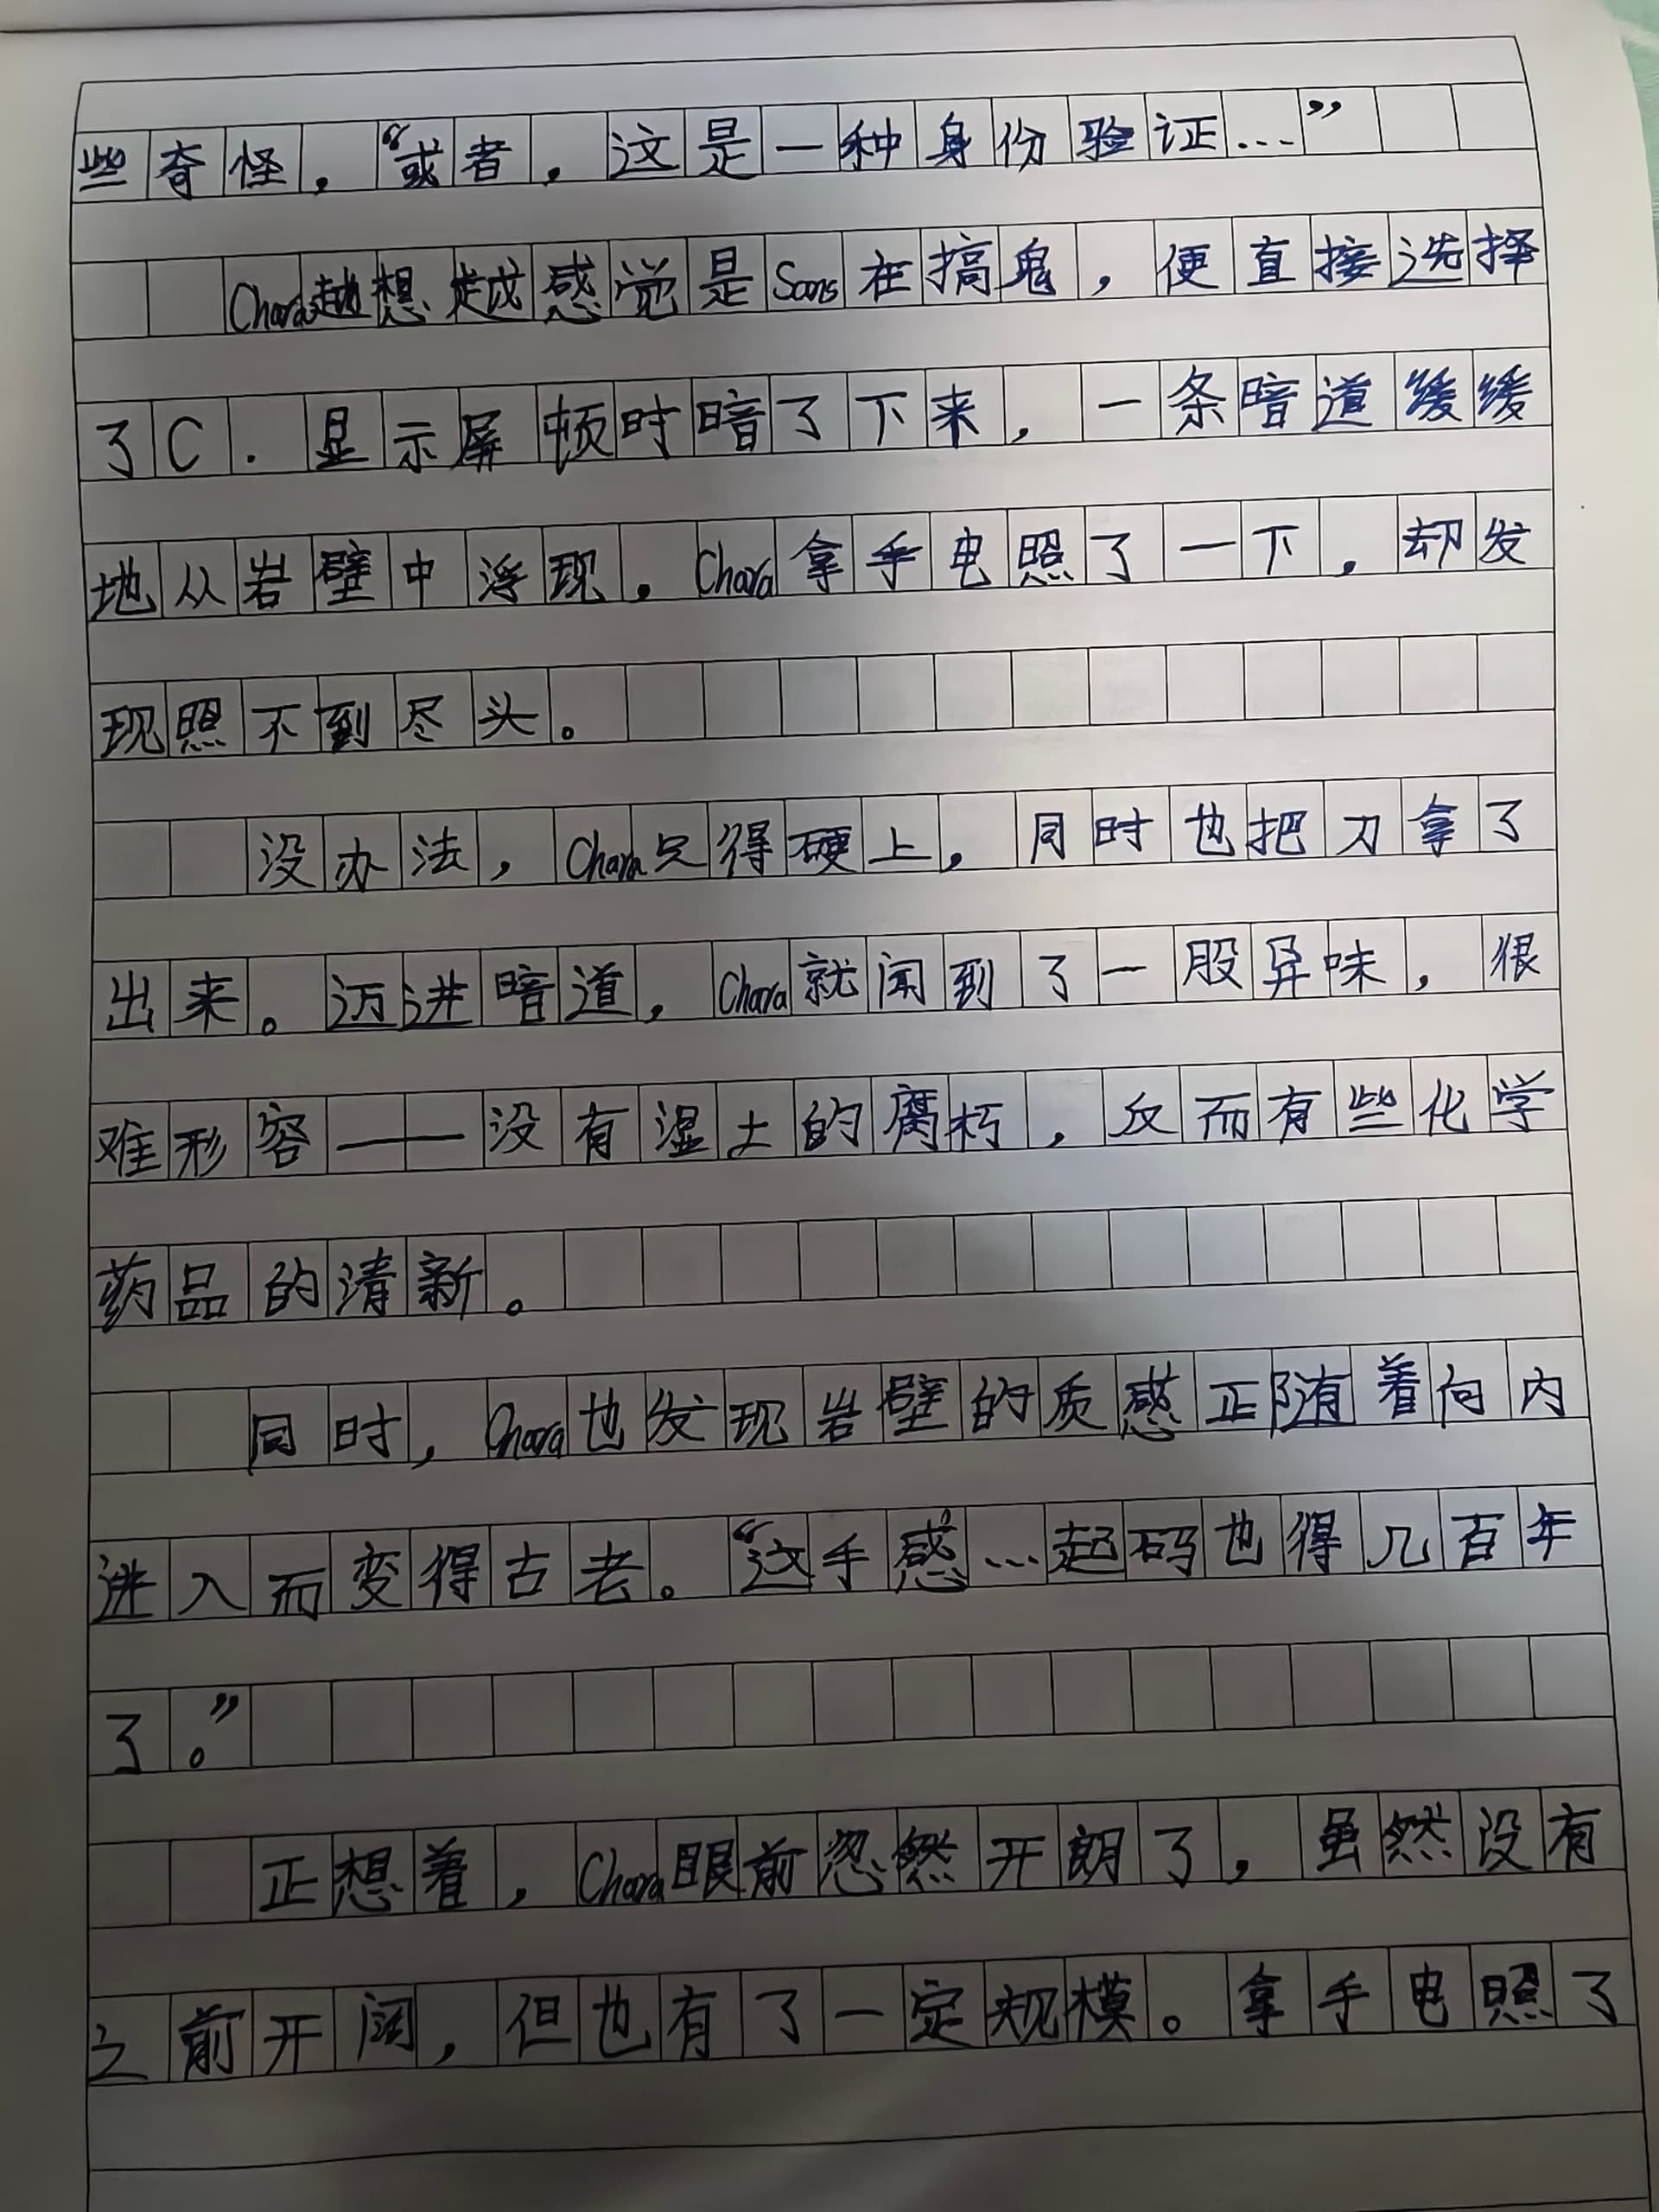 些奇怪，“或者，这是一种身份验证…”
Chara越想越感觉是Sans在搞鬼，便直接选择
了C．显示屏顿时暗了下来，一条暗道缓缓
地从岩壁中浮现，Chara拿手电照了一下，却发
现照不到尽头。
没办法，Chara只得硬上，同时也把刀拿了
出来。迈进暗道，Chara就闻到了一股异味，很
难形容——没有湿土的腐朽，反而有些化学
药品的清新。
同时，Chara也发现岩壁的质感正随着向内
进入而变得古老。“这手感…起码也得几百年
了。”
正想着，Chara眼前忽然开朗了，虽然没有
之前开阔，但也有了一定规模。拿手电照了